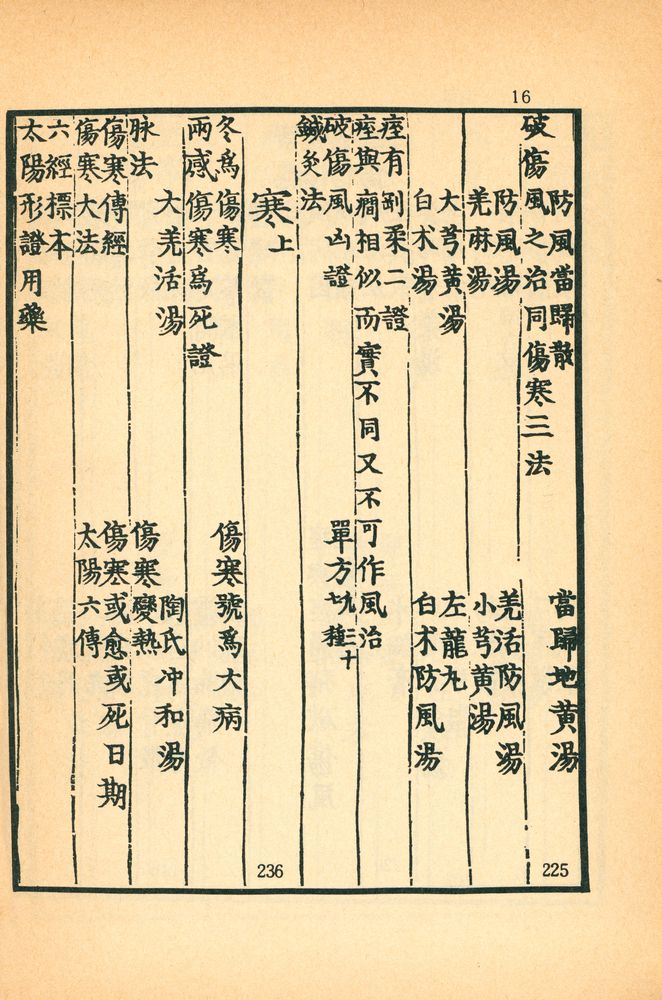 16
防風當歸散 當歸地黃湯
破傷風之治同傷寒三法
225
防風湯 羌活防風湯
羌麻湯 小芎黃湯
大芎黃湯 左龍丸
白朮湯 白朮防風湯
痓有剛柔二證
痓與癎相似而實不同又不可作風治
破傷風凶證 單方凡三十七種
鍼灸法
寒上
236
冬爲傷寒 傷寒號爲大病
兩感傷寒爲死證
大羌活湯 陶氏冲和湯
脉法 傷寒變熱
傷寒傳經 傷寒或愈或死日期
傷寒大法 太陽六傳
六經標本
太陽形證用藥